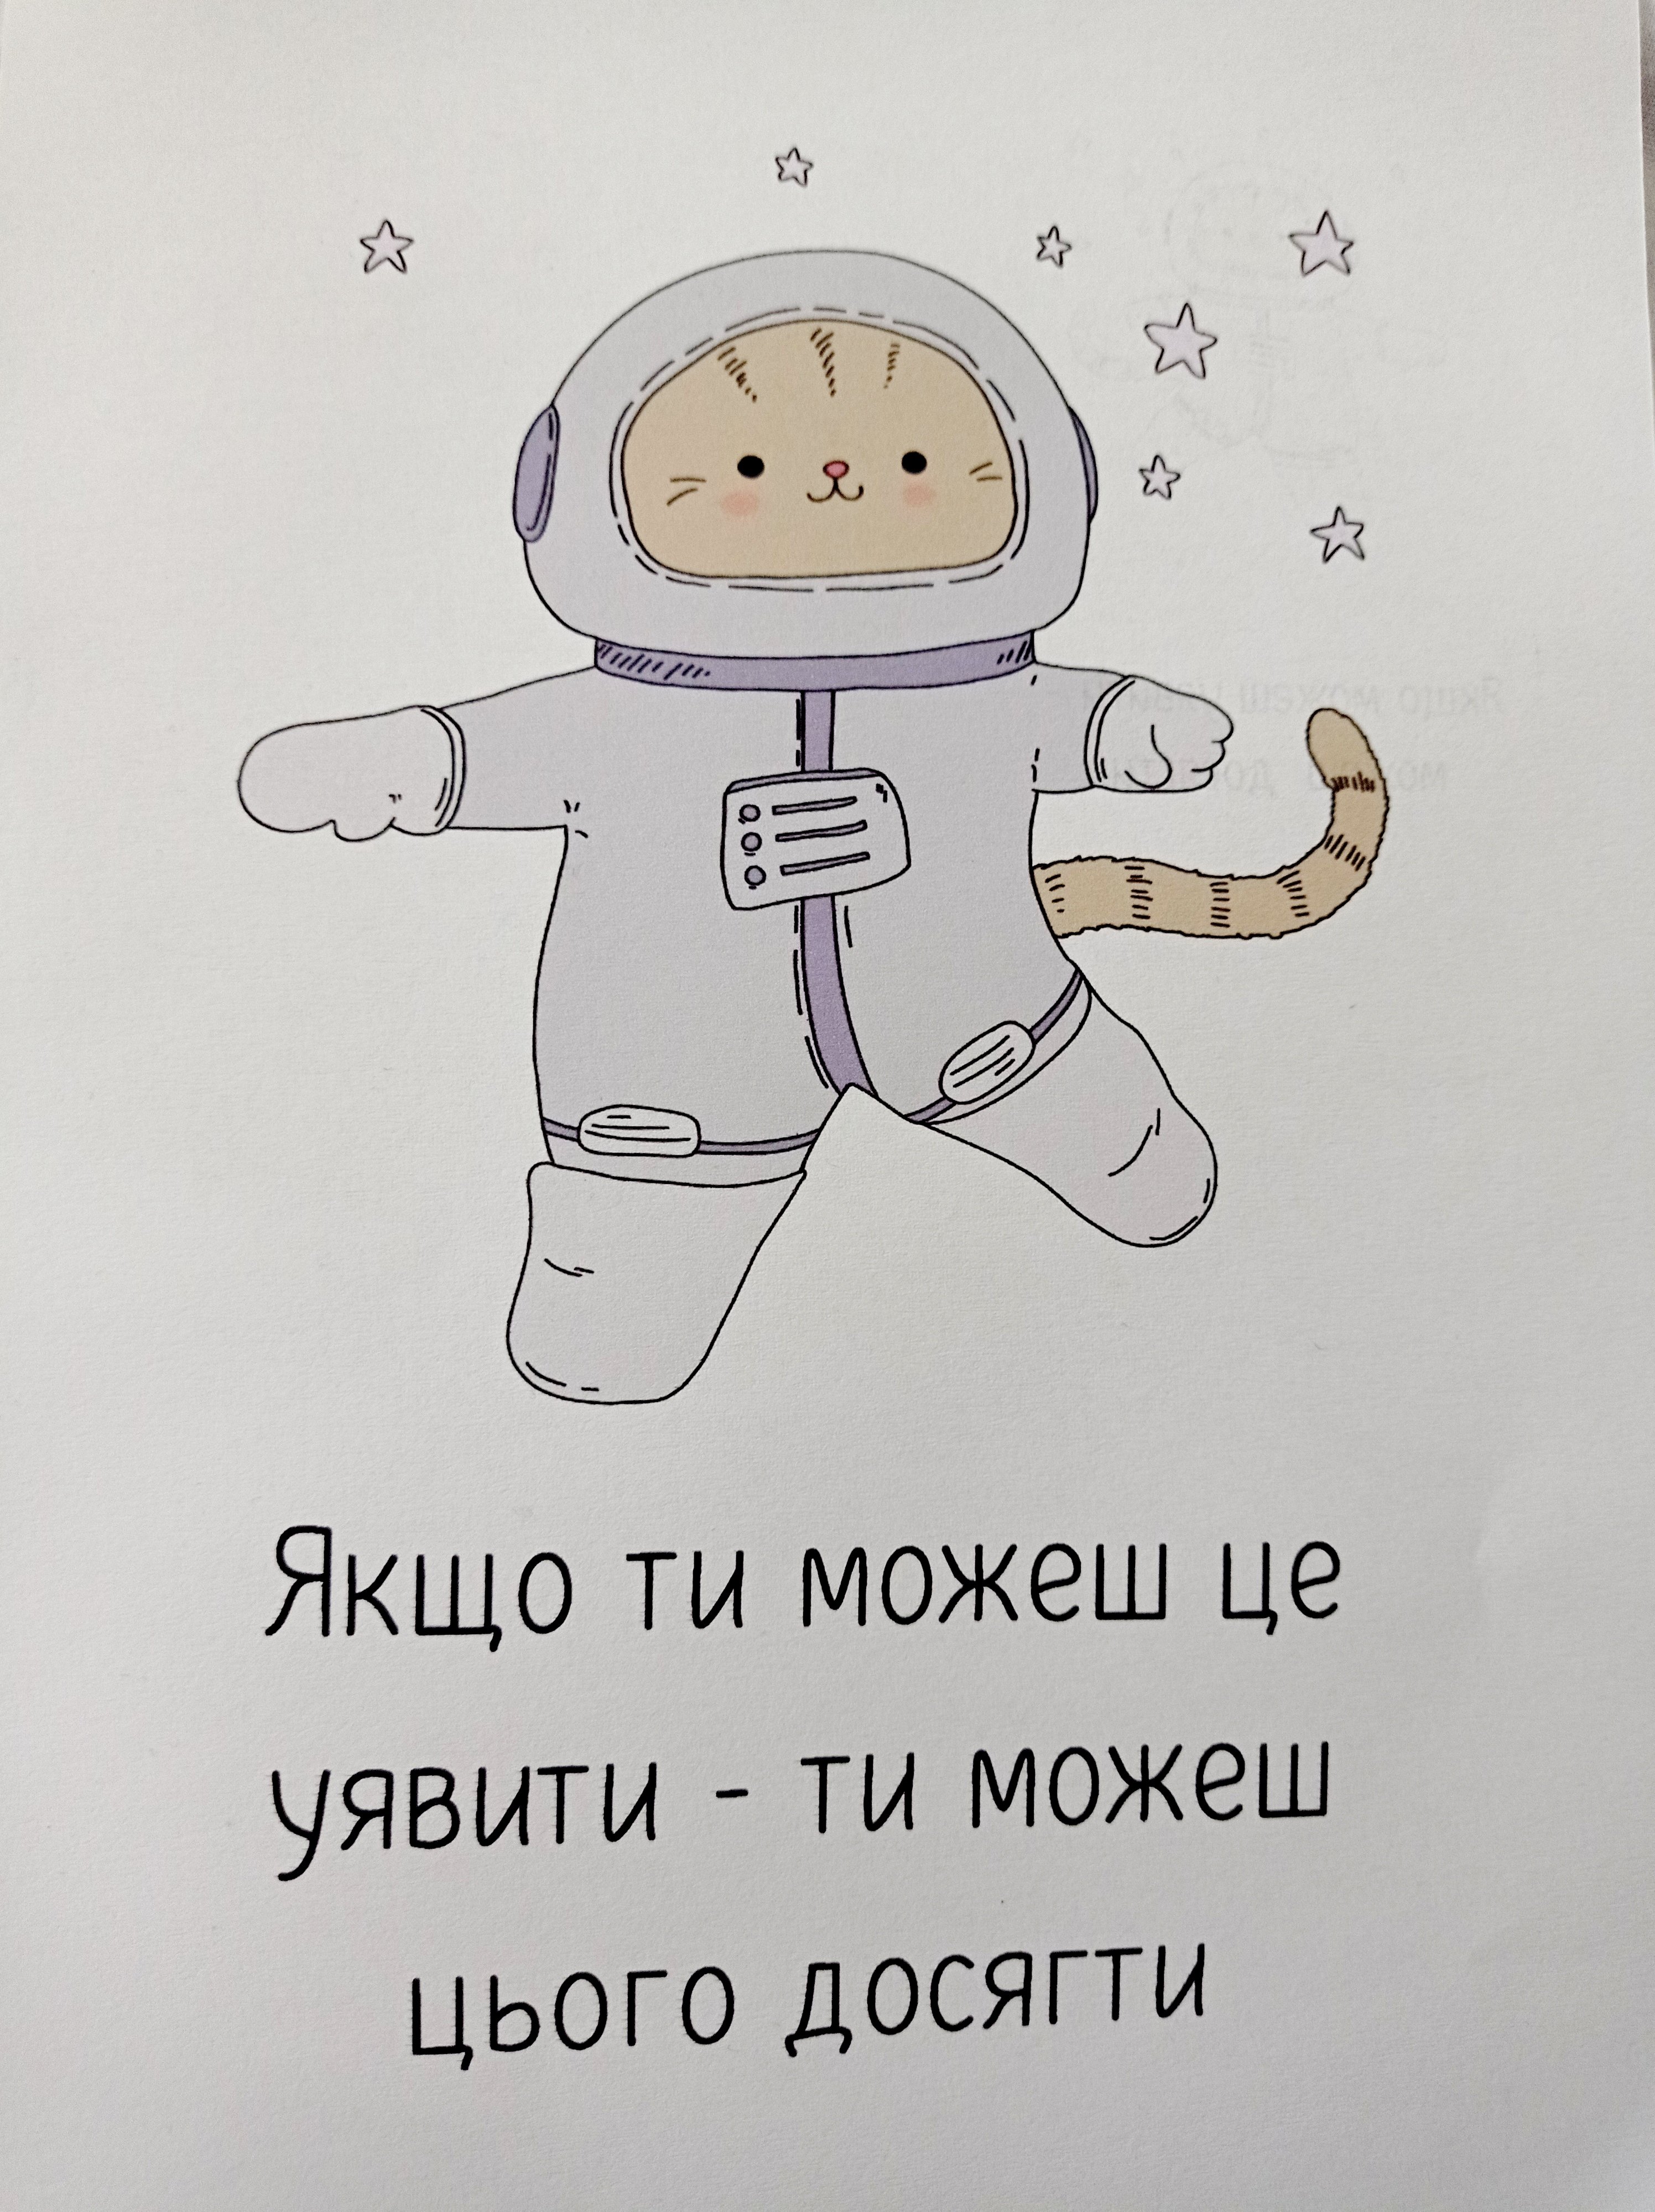 Якщо ти можеш це
уявити - ти можеш
цього досягти